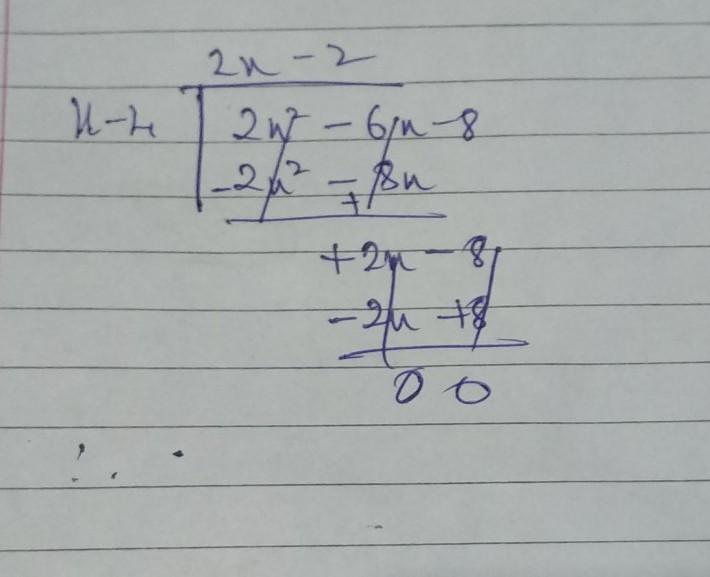 2x - 2
x-4 2x² - 6x - 8
-2x² - 8x
+
+2x - 8
-2x +8
0 0
∴